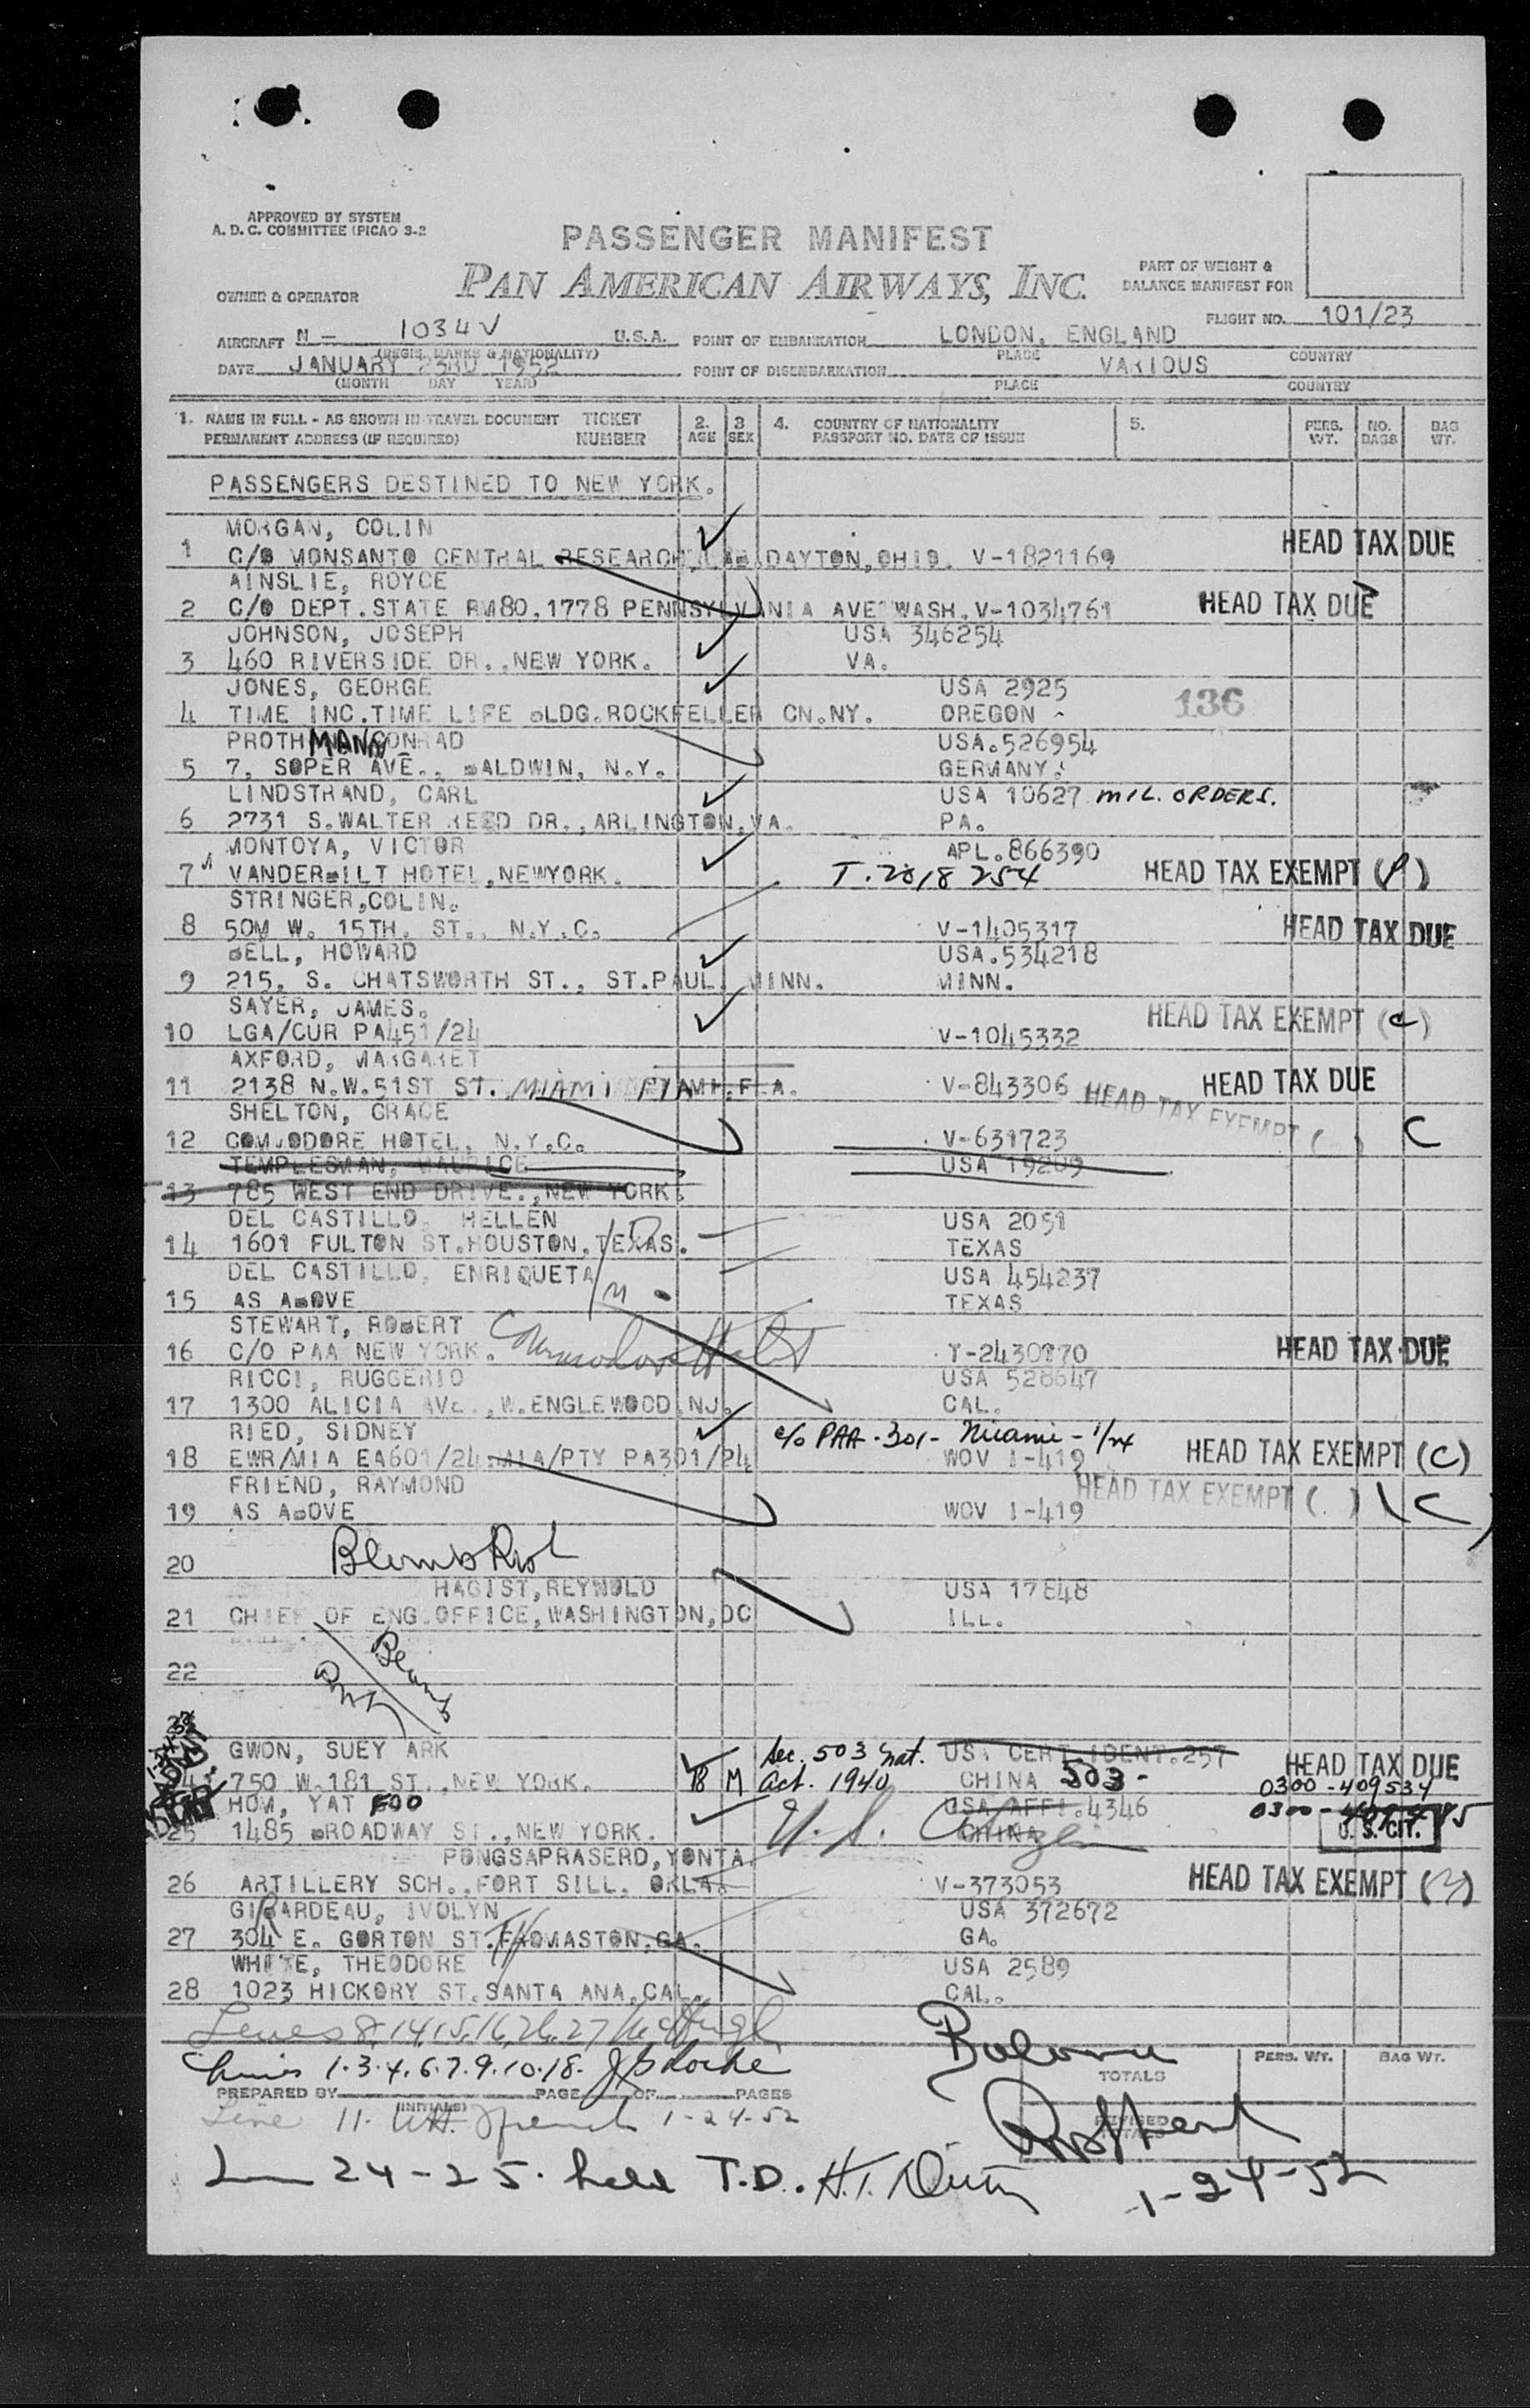 APPROVED BY SYSTEM
A. D. C. COMMITTEE (PICAO 3-2
PASSENGER MANIFEST
PAN AMERICAN AIRWAYS, INC.
PART OF WEIGHT &
BALANCE MANIFEST FOR
OWNER & OPERATOR
FLIGHT NO. 101/23
AIRCRAFT N - 1034V U.S.A. POINT OF EMBARKATION LONDON, ENGLAND
(REGIS. MARKS & NATIONALITY) PLACE COUNTRY
DATE JANUARY 23RD 1952 POINT OF DISEMBARKATION VARIOUS
(MONTH DAY YEAR) PLACE COUNTRY
1. NAME IN FULL - AS SHOWN IN TRAVEL DOCUMENT TICKET 2. 3 4. COUNTRY OF NATIONALITY 5. PERS. NO. BAG
PERMANENT ADDRESS (IF REQUIRED) NUMBER AGE SEX PASSPORT NO. DATE OF ISSUE WT. BAGS WT.
PASSENGERS DESTINED TO NEW YORK.
MORGAN, COLIN
1 C/O MONSANTO CENTRAL RESEARCH, DAYTON, OHIO. V-1821169 HEAD TAX DUE
AINSLIE, ROYCE
2 C/O DEPT.STATE RM80,1778 PENNSYLVANIA AVE WASH. V-1034761 HEAD TAX DUE
JOHNSON, JOSEPH USA 346254
3 460 RIVERSIDE DR., NEW YORK. VA.
JONES, GEORGE USA 2925
4 TIME INC.TIME LIFE BLDG.ROCKFELLER CN.NY. OREGON 136
PROTHMANN CONRAD USA.526954
5 7, SOPER AVE., BALDWIN, N.Y. GERMANY.
LINDSTRAND, CARL USA 10627 MIL. ORDERS.
6 2731 S.WALTER REED DR., ARLINGTON, VA. PA.
MONTOYA, VICTOR APL.866390
7 VANDERBILT HOTEL, NEWYORK. T.2018254 HEAD TAX EXEMPT (P)
STRINGER,COLIN.
8 50M W. 15TH. ST., N.Y.C. V-1405317 HEAD TAX DUE
BELL, HOWARD USA.534218
9 215, S. CHATSWORTH ST., ST.PAUL, MINN. MINN.
SAYER, JAMES.
10 LGA/CUR PA451/24 V-1045332 HEAD TAX EXEMPT (C)
AXFORD, MARGARET
11 2138 N.W.51ST ST. MIAMI FLA. V-843306 HEAD TAX DUE
SHELTON, GRACE HEAD TAX EXEMPT ( ) C
12 COMMODORE HOTEL, N.Y.C. V-631723
TEMPLESMAN, MAURICE USA 19209
13 785 WEST END DRIVE., NEW YORK.
DEL CASTILLO, HELLEN USA 2051
14 1601 FULTON ST.HOUSTON, TEXAS. TEXAS
DEL CASTILLO, ENRIQUETA USA 454237
15 AS ABOVE TEXAS
STEWART, ROBERT
16 C/O PAA NEW YORK. Commodore Hotel T-2430870 HEAD TAX DUE
RICCI, RUGGERIO USA 528647
17 1300 ALICIA AVE., W.ENGLEWOOD.NJ. CAL.
RIED, SIDNEY c/o PAA-301- Miami - 1/24
18 EWR/MIA EA601/24 MIA/PTY PA301/24 WOV 1-419 HEAD TAX EXEMPT (C)
FRIEND, RAYMOND HEAD TAX EXEMPT ( ) (C)
19 AS ABOVE WOV 1-419
20
HAGIST,REYNOLD USA 17848
21 CHIEF OF ENG.OFFICE,WASHINGTON,DC ILL.
22
GWON, SUEY ARK Sec. 503 Nat. USA CERT.IDENT.257 HEAD TAX DUE
750 W.181 ST., NEW YORK. 18 M Act. 1940 CHINA 503- 0300-409534
HOM, YAT FOO USA/AFFI.4346
25 1485 BROADWAY ST., NEW YORK. U.S. Citizen CHINA U. S. CIT.
PONGSAPRASERD,YONTA.
26 ARTILLERY SCH., FORT SILL. OKLA. V-373053 HEAD TAX EXEMPT (3)
GIRARDEAU, IVOLYN USA 372672
27 304 E. GORTON ST.THOMASTON,GA. GA.
WHITE, THEODORE USA 2589
28 1023 HICKORY ST.SANTA ANA,CAL. CAL.
Lines 8, 14, 15, 16, 26, 27
Lines 1.3.4.6.7.9.10.18.
TOTALS PERS. WT. BAG WT.
PREPARED BY PAGE OF PAGES
(INITIALS)
Line 11. 1-24-52
REVISED
TOTALS
24-25. held T.D. H.T.
1-24-52